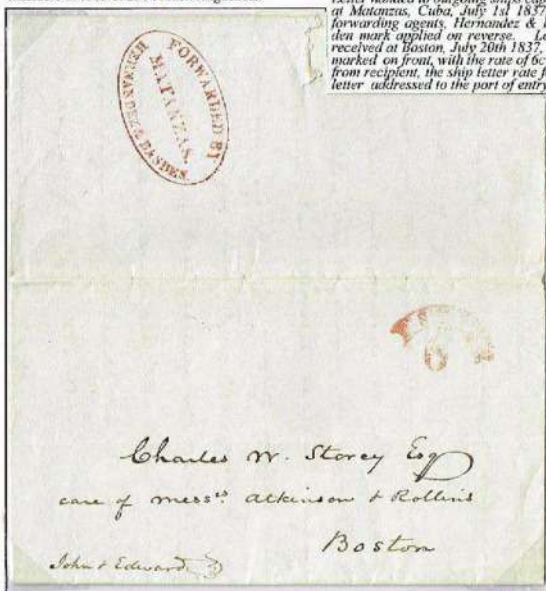 Letter handed to outgoing ships
at Matanzas, Cuba, July 1st 1837
forwarding agents, Hernandez &
den mark applied on reverse.
received at Boston, July 20th 1837,
marked on front, with the rate of 6c
from recipient, the ship letter rate
letter addressed to the port of entry
FORWARDED BY
MATANZAS.
HERNANDEZ & BASDEN
6
Charles W. Storey Esq
care of Messrs. Atkinson & Rollins
Boston
John & Edward